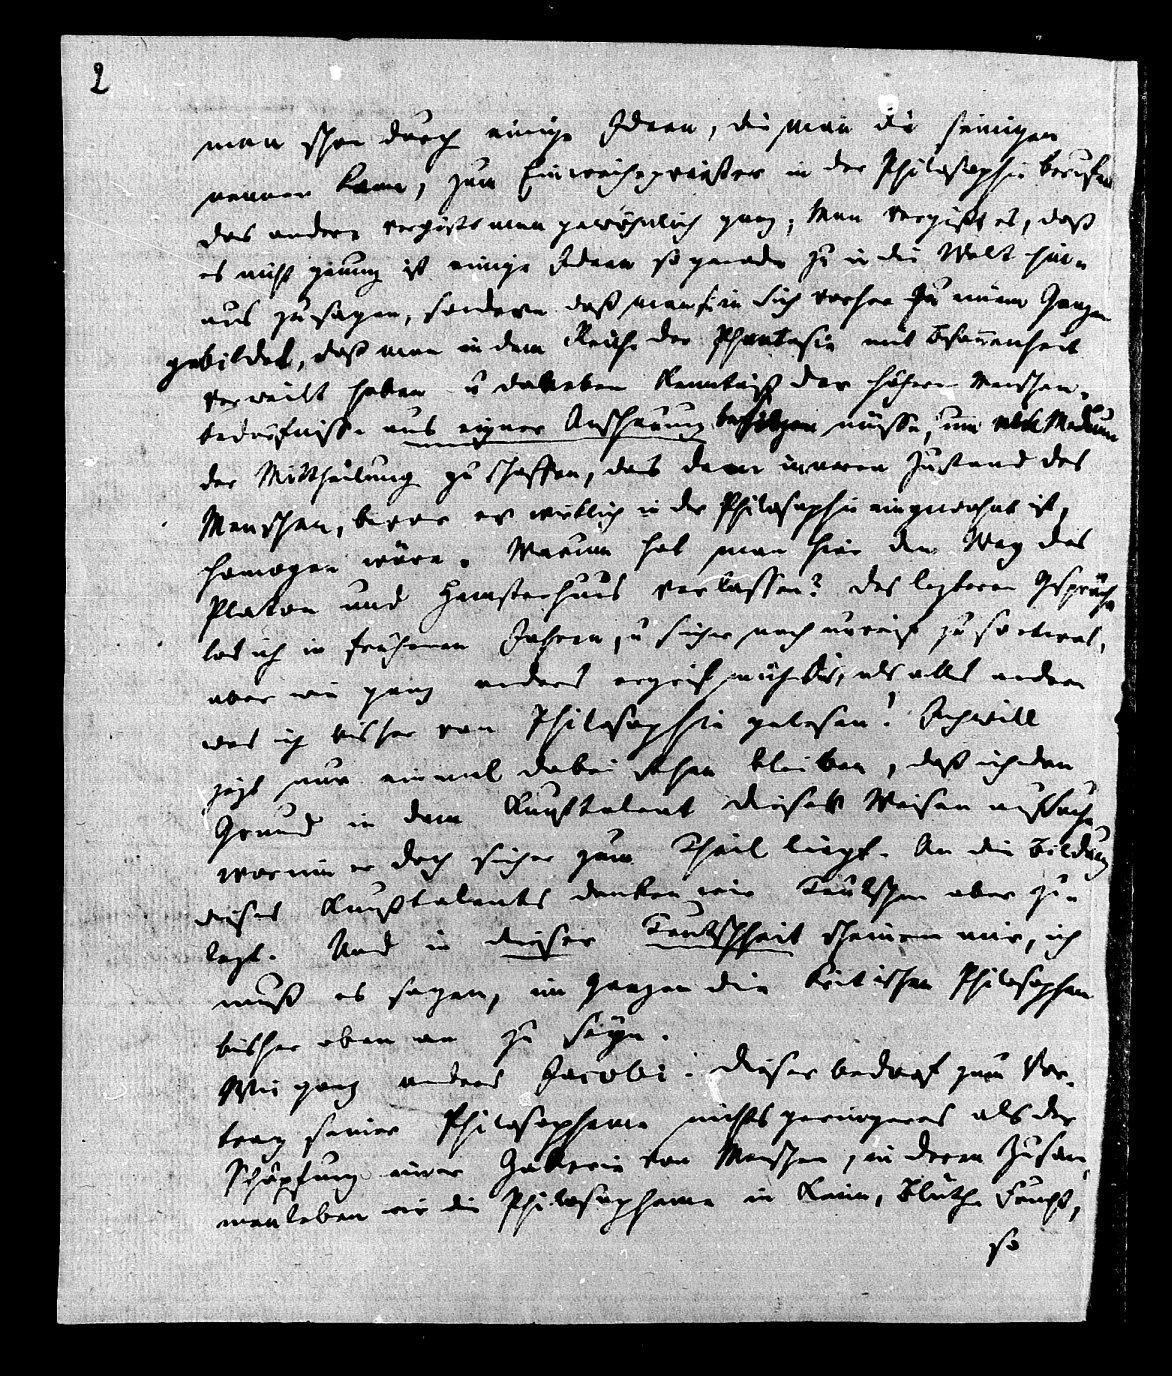 2
man schon durch einige Ideen, die man die seinigen
nennen kann, zum Einweihepriester in der Philosophie berufen
das andere vergißt man gewöhnlich ganz; Man vergißt es, daß
es nicht genung ist einige Ideen so gerade zu in die Welt hin-
aus zu sagen, sondern daß man sie in sich vorher zu einem Ganzen
gebildet, daß man in dem Reiche der Phantasie mit Besonnenheit
verweilt haben u daneben Kenntniß der höhern Menschen-
bedürfnisse aus eigner Anschauung besitzen müsse, um Medium
der Mittheilung zu schaffen, das dem innern Zustand des
Menschen, bevor er wirklich in der Philosophie eingewohnt ist,
homogen wäre. Warum hat man hier den Weg des
Platon und Hemsterhuis verlassen? Des letzteren Gespräche
las ich in früheren Jahren, u sicher noch unreif zu so etwas,
aber wie ganz anders ergrif mich dies, als alles andere
was ich bisher von Philosophie gelesen! Ich will
jezt nur einmal dabei stehen bleiben, daß ich den
Grund in dem Kunsttalent dieses Weisen aufsuche
worinn er doch sicher zum Theil liegt. An die Bildung
dieses Kunsttalents denken wir Teutschen aber zu-
lezt. Und in dieser Teutschheit scheinen mir, ich
muß es sagen, im Ganzen die kritischen Philosophen
bisher oben an zu seyn.
Wie ganz anders Jacobi. Dieser bedarf zum Vor-
trag seiner Philosopheme nichts geringeres als der
Schöpfung einer Gallerie von Menschen, in deren Zusam-
menleben wir die Philosopheme in Keim, Blüthe Frucht,
so